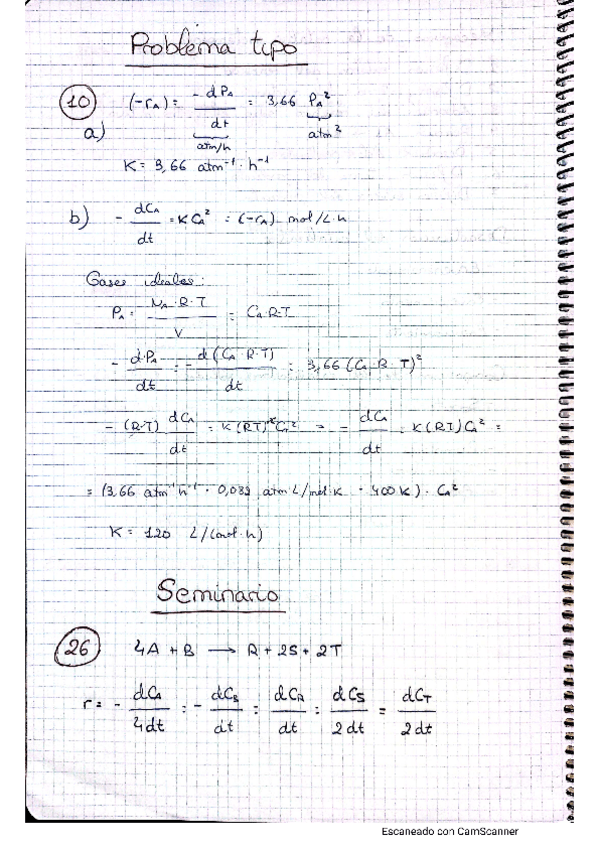 Problema tipo
10 (-rA) = -dPA/dt = 3,66 PA²
a) atm/h atm²
K = 3,66 atm⁻¹ · h⁻¹
b) - dCA/dt = K CA² = (-rA) mol/L·h
Gases ideales:
PA = NA·R·T/V = CA·R·T
- d·PA/dt = - d(CA·R·T)/dt = 3,66 (CA·R·T)²
- (R·T) dCA/dt = K(RT)² CA² → - dCA/dt = K(RT)CA² =
= (3,66 atm⁻¹ h⁻¹ · 0,082 atm L/mol·K · 400 K) · CA²
K = 120 L/(mol·h)
Seminario
26 4A + B → R + 2S + 2T
r = - dCA/4dt = - dCB/dt = dCR/dt = dCS/2dt = dCT/2dt
Escaneado con CamScanner